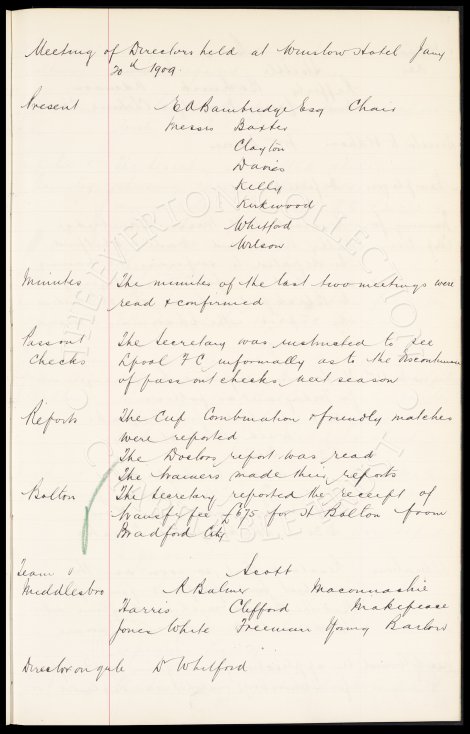 Meeting of Directors held at Winslow Hotel Jany
20th 1909.
Present E A Bainbridge Esq Chair
Messrs Baxter
Clayton
Davies
Kelly
Kirkwood
Whitford
Wilson
Minutes The minutes of the last two meetings were
read & confirmed
Pass out The Secretary was instructed to see
Checks Lpool F C informally as to the discontinuance
of pass out checks next season
Reports The Cup Combination & friendly matches
were reported
The Doctors report was read
The trainers made their reports
Bolton The Secretary reported the receipt of
transfer fee £675 for H Bolton from
Bradford City
Team v Scott
Middlesbro R Balmer Maconnachie
Harris Clifford Makepeace
Jones White Freeman Young Barlow
Director on gate D Whitford
THE EVERTON COLLECTION